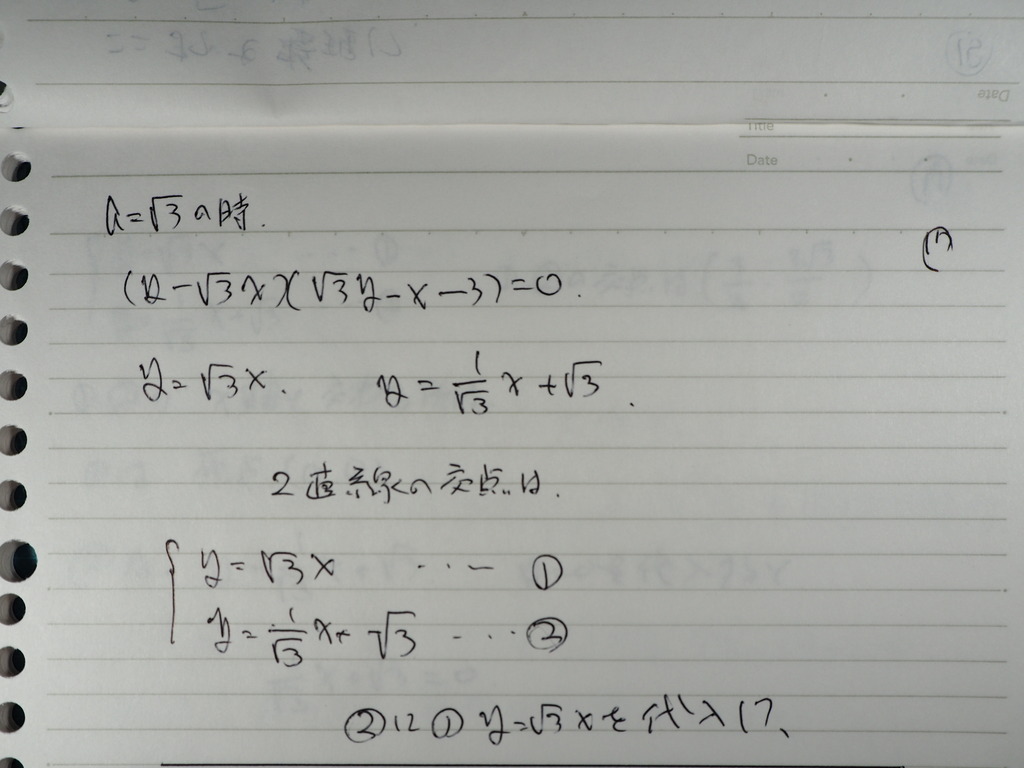 Title
Date
a=√3の時.
(y-√3x)(√3y-x-3)=0.
y=√3x. y=1/√3 x+√3.
2直線の交点は.
y=√3x ・・・ ①
y=1/√3 x+√3 ・・・ ②
②に① y=√3xを代入して、